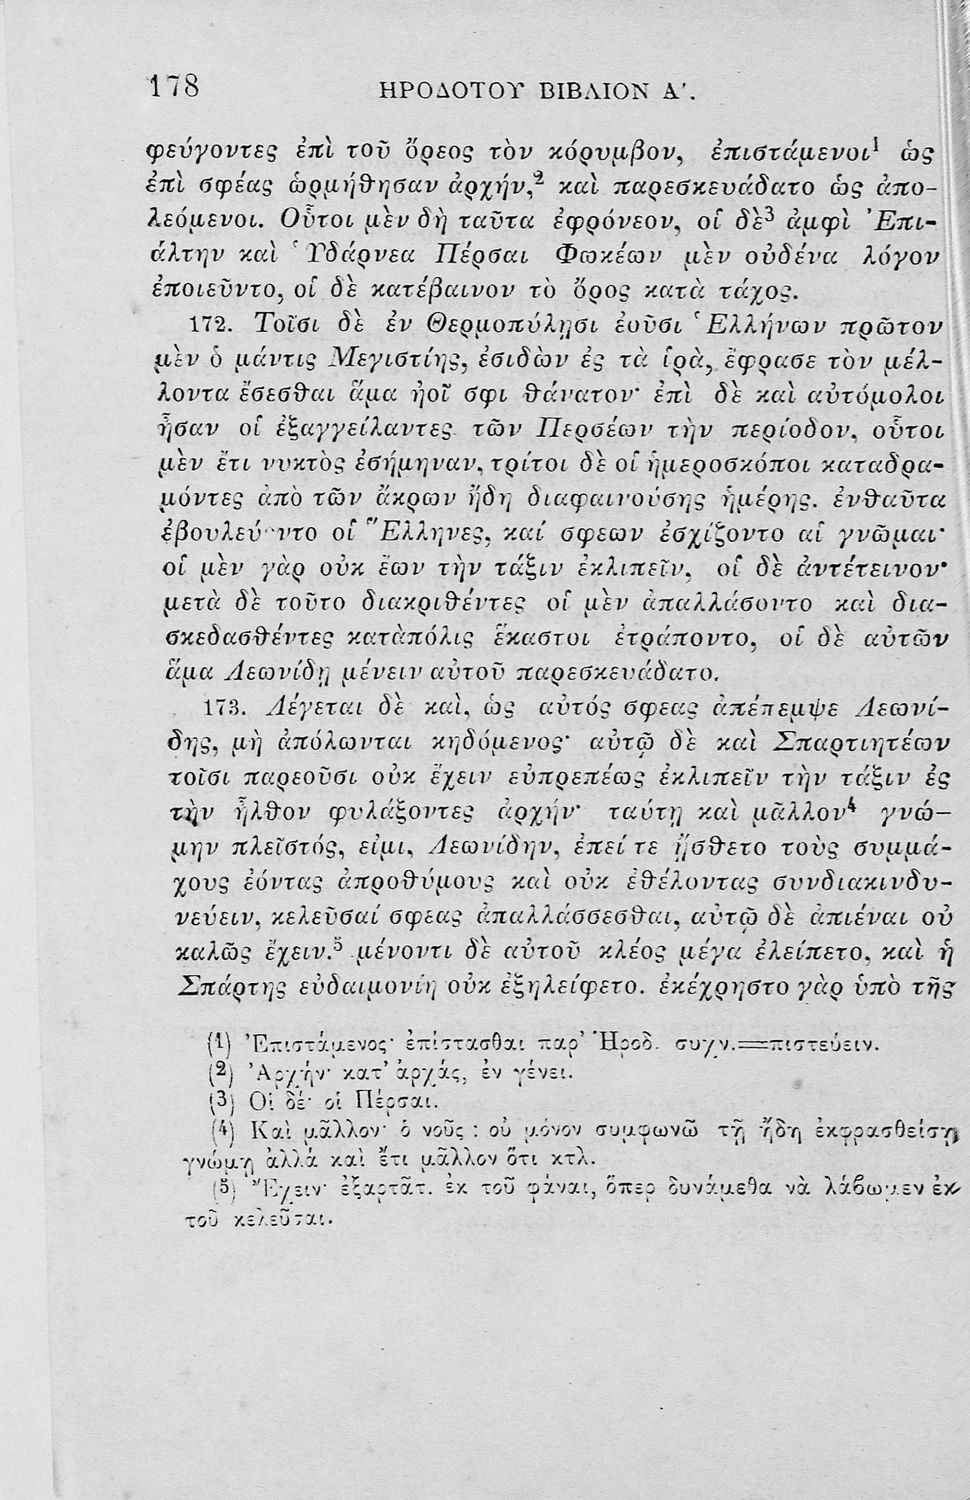 178 ΗΡΟΔΟΤΟΥ ΒΙΒΛΙΟΝ Α'.
φεύγοντες ἐπὶ τοῦ ὄρεος τὸν κόρυμβον, ἐπιστάμενοι¹ ὡς
ἐπὶ σφέας ὡρμήθησαν ἀρχήν,² καὶ παρεσκευάδατο ὡς ἀπο-
λεόμενοι. Οὗτοι μὲν δὴ ταῦτα ἐφρόνεον, οἱ δὲ³ ἀμφὶ Ἐπι-
άλτην καὶ Ὑδάρνεα Πέρσαι Φωκέων μὲν οὐδένα λόγον
ἐποιεῦντο, οἱ δὲ κατέβαινον τὸ ὄρος κατὰ τάχος.
172. Τοῖσι δὲ ἐν Θερμοπύλῃσι ἐοῦσι Ἑλλήνων πρῶτον
μὲν ὁ μάντις Μεγιστίης, ἐσιδὼν ἐς τὰ ἱρὰ, ἔφρασε τὸν μέλ-
λοντα ἔσεσθαι ἅμα ἠοῖ σφι θάνατον· ἐπὶ δὲ καὶ αὐτόμολοι
ἦσαν οἱ ἐξαγγείλαντες τῶν Περσέων τὴν περίοδον, οὗτοι
μὲν ἔτι νυκτὸς ἐσήμηναν, τρίτοι δὲ οἱ ἡμεροσκόποι καταδρα-
μόντες ἀπὸ τῶν ἄκρων ἤδη διαφαινούσης ἡμέρης. ἐνθαῦτα
ἐβουλεύοντο οἱ Ἕλληνες, καί σφεων ἐσχίζοντο αἱ γνῶμαι·
οἱ μὲν γὰρ οὐκ ἔων τὴν τάξιν ἐκλιπεῖν, οἱ δὲ ἀντέτεινον·
μετὰ δὲ τοῦτο διακριθέντες οἱ μὲν ἀπαλλάσοντο καὶ δια-
σκεδασθέντες κατὰπόλις ἕκαστοι ἐτράποντο, οἱ δὲ αὐτῶν
ἅμα Λεωνίδῃ μένειν αὐτοῦ παρεσκευάδατο.
173. Λέγεται δὲ καὶ, ὡς αὐτός σφεας ἀπέπεμψε Λεωνί-
δης, μὴ ἀπόλωνται κηδόμενος· αὐτῷ δὲ καὶ Σπαρτιητέων
τοῖσι παρεοῦσι οὐκ ἔχειν εὐπρεπέως ἐκλιπεῖν τὴν τάξιν ἐς
τὴν ἦλθον φυλάξοντες ἀρχήν· ταύτῃ καὶ μᾶλλον⁴ γνώ-
μην πλεῖστός, εἰμι, Λεωνίδην, ἐπεί τε ᾔσθετο τοὺς συμμά-
χους ἐόντας ἀπροθύμους καὶ οὐκ ἐθέλοντας συνδιακινδυ-
νεύειν, κελεῦσαί σφεας ἀπαλλάσσεσθαι, αὐτῷ δὲ ἀπιέναι οὐ
καλῶς ἔχειν.⁵ μένοντι δὲ αὐτοῦ κλέος μέγα ἐλείπετο, καὶ ἡ
Σπάρτης εὐδαιμονίη οὐκ ἐξηλείφετο. ἐκέχρηστο γὰρ ὑπὸ τῆς
(1) Ἐπιστάμενος· ἐπίστασθαι παρ' Ἡροδ. συχν.=πιστεύειν.
(2) Ἀρχήν· κατ' ἀρχάς, ἐν γένει.
(3) Οἱ δέ· οἱ Πέρσαι.
(4) Καὶ μᾶλλον· ὁ νοῦς : οὐ μόνον συμφωνῶ τῇ ἤδη ἐκφρασθείσῃ
γνώμῃ ἀλλὰ καὶ ἔτι μᾶλλον ὅτι κτλ.
(5) Ἔχειν· ἐξαρτᾶτ. ἐκ τοῦ φάναι, ὅπερ δυνάμεθα νὰ λάβωμεν ἐκ
τοῦ κελεῦσαι.